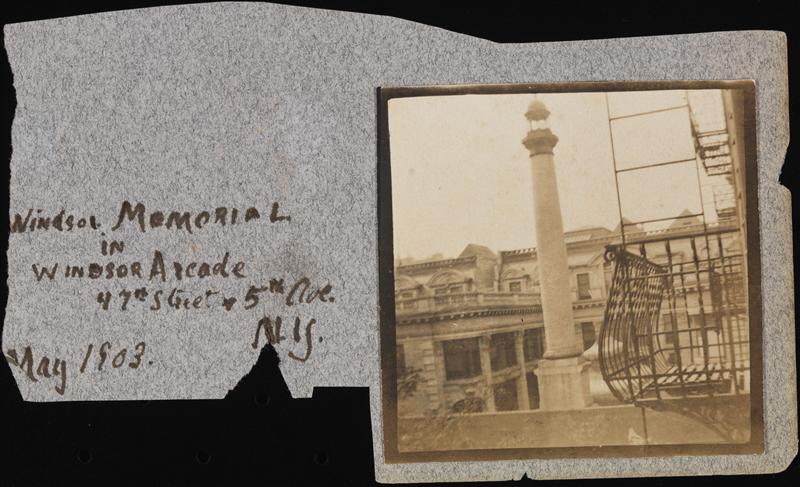 Windsor Memorial
in
Windsor Arcade
47th Street & 5th Ave.
N.Y.
May 1903.